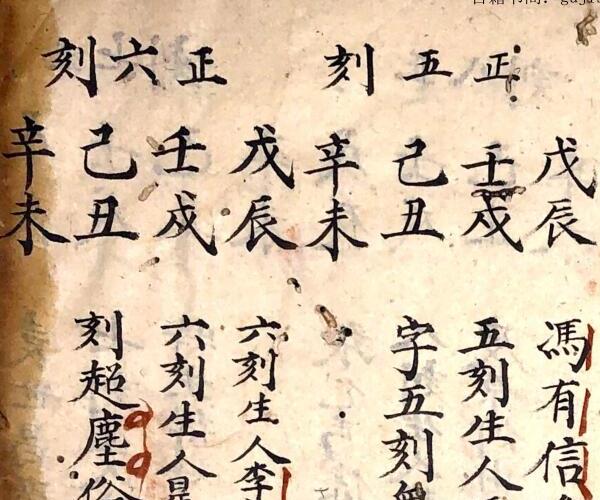 正五刻
戊辰
壬戌
己丑
辛未
馮有信
五刻生人
字五刻
正六刻
戊辰
壬戌
己丑
辛未
六刻生人李
六刻生人是
刻超塵俗